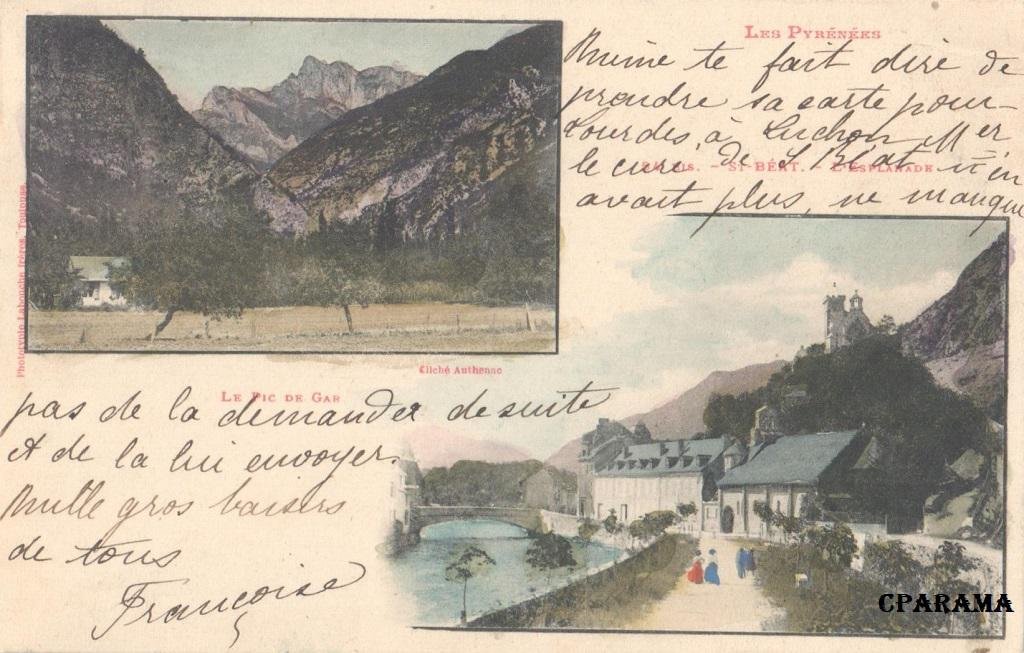 LES PYRÉNÉES
Mimine te fait dire de
prendre sa carte pour
Lourdes, à Luchon Mer
le curé de St Béat n'en
BIS. - ST-BÉAT. - L'ESPLANADE
avait plus, ne manque
Phototypie Labouche frères, Toulouse
Cliché Authenac
LE PIC DE GAR
pas de la demander de suite
et de la lui envoyer
Mille gros baisers
de tous
Françoise
CPARAMA